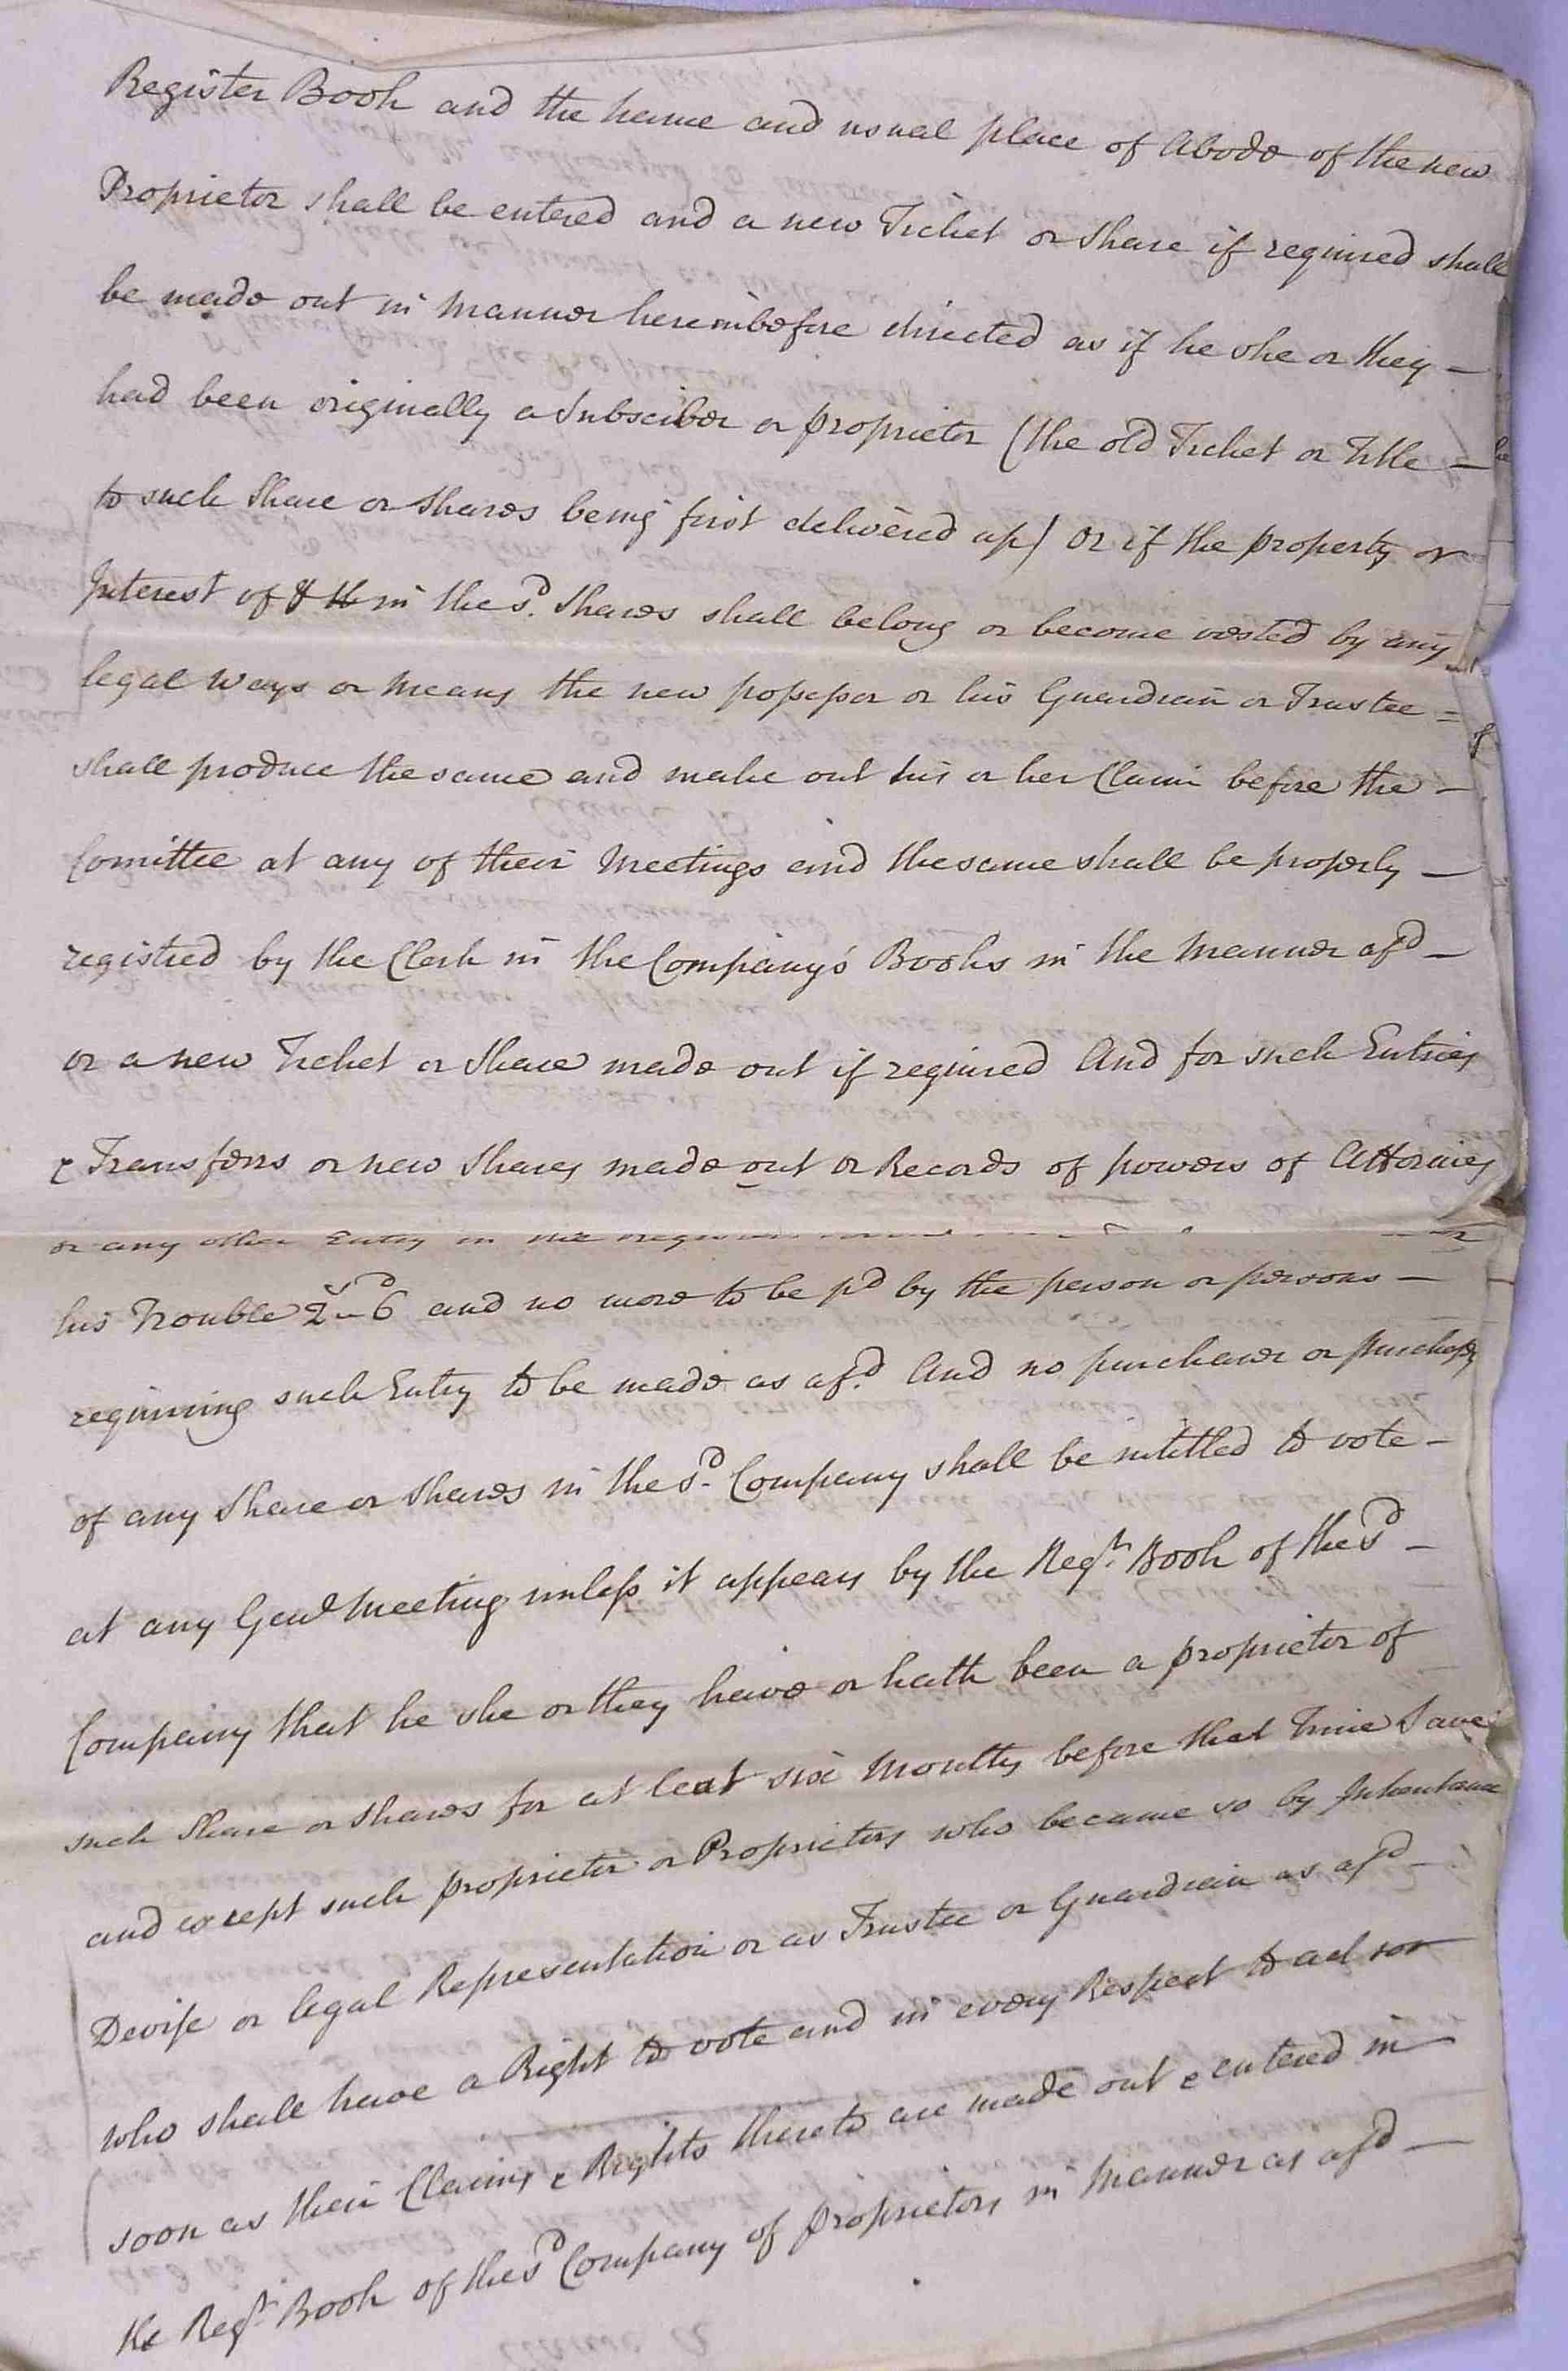 Register Book and the name and usual place of Abode of the new
Proprietor shall be entered and a new Ticket or Share if required shall
be made out in Manner hereinbefore directed as if he she or they —
had been originally a Subsciber or proprietor (the old Ticket or Title —
to such Share or Shares being first delivered up) Or if the property or
Interest of & in the sd. Shares shall belong or become vested by any
legal Ways or Means the new possessor or his Guardian or Trustee =
shall produce the same and make out his or her Claim before the —
Comittee at any of their Meetings and the same shall be properly —
registred by the Clerk in the Company's Books in the Manner afd —
or a new Ticket or Share made out if required And for such Entries
& Transferrs or new Shares made out or Records of powers of Attornies
or any other Entry in
his Trouble 2s-6d and no more to be pd by the person or persons —
requiring such Entry to be made as afd. And no purchaser or purchasers
of any Share or Shares in the sd. Company shall be intitled to vote —
at any Genl Meeting unless it appears by the Regr. Book of the sd —
Company that he she or they have or hath been a proprietor of
such Share or Shares for at leat six Months before that Time Save
and except such proprietor or Proprietors who became so by Inheritance
Devise or legal Representation or as Trustee or Guardian as afd —
who shall have a Right to vote and in every Respect to act so
soon as their Claims & Rights thereto are made out & entered in
the Regr. Book of the sd Company of proprietors in Manner as afd —